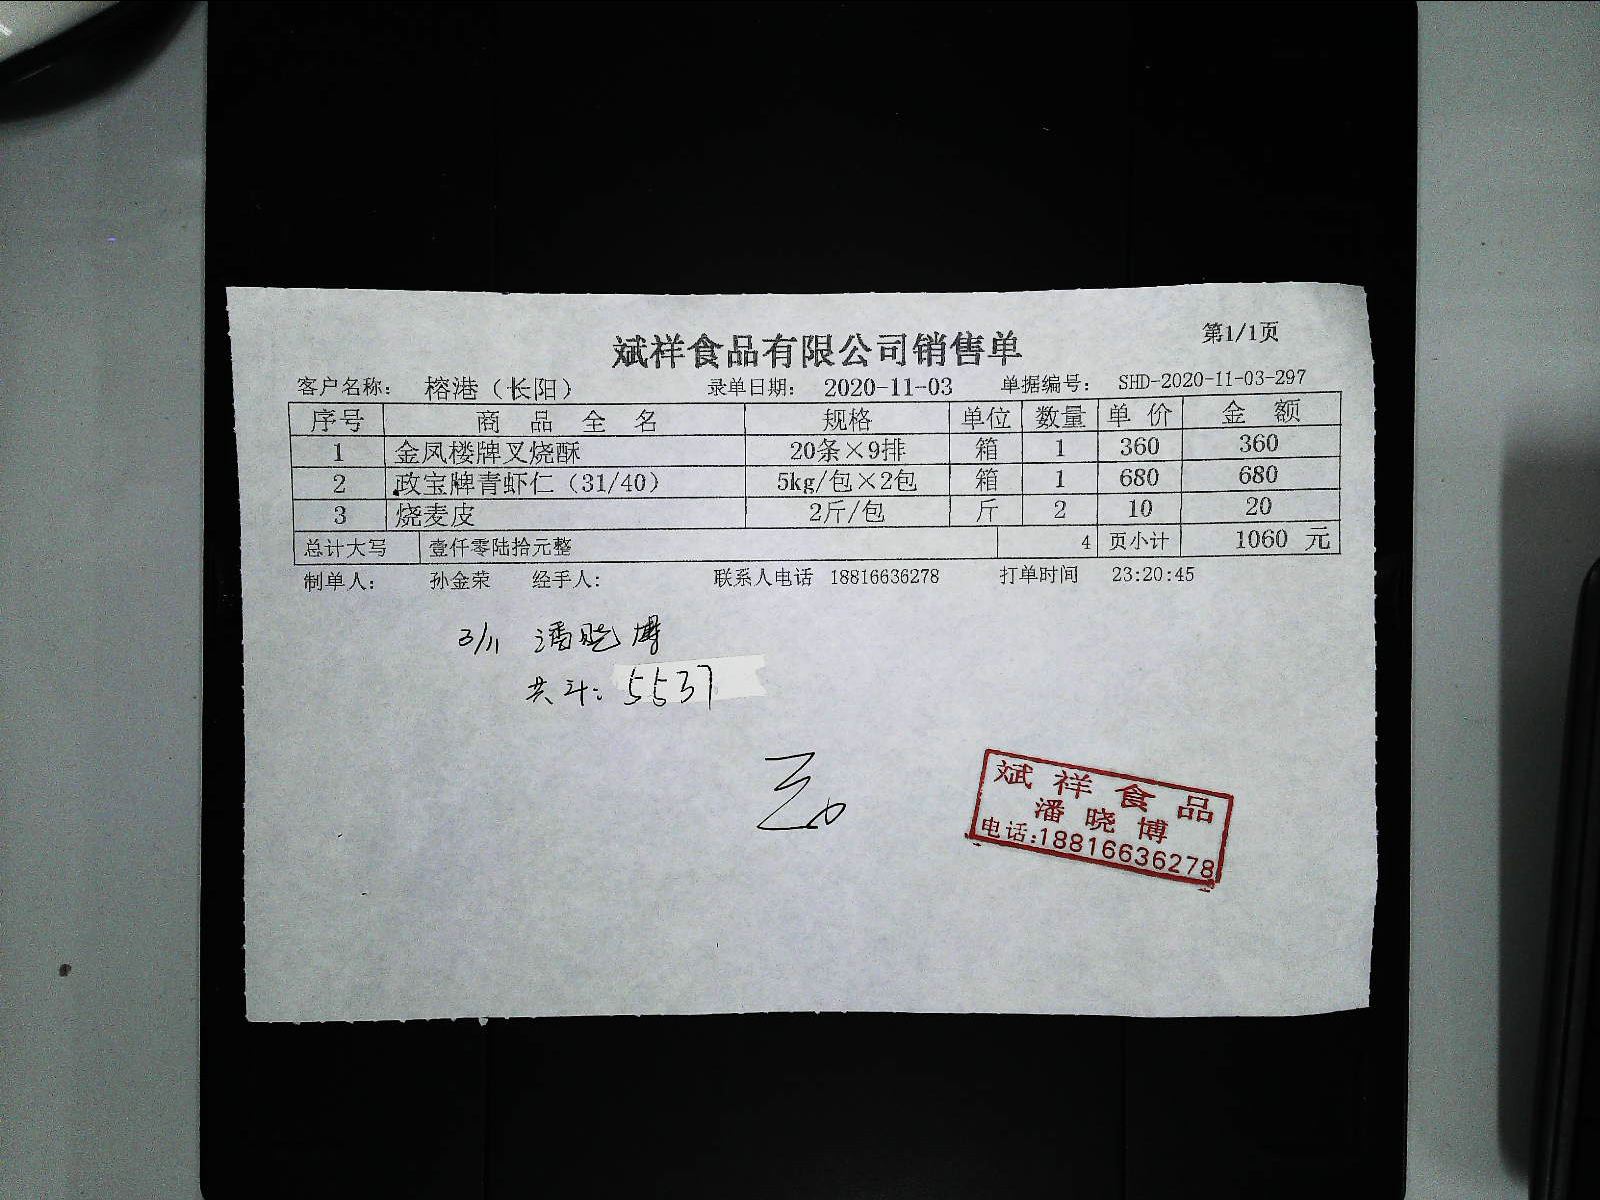 第1/1页
斌祥食品有限公司销售单
客户名称： 榕港（长阳） 录单日期： 2020-11-03 单据编号： SHD-2020-11-03-297
序号 商 品 全 名 规格 单位 数量 单 价 金 额
1 金凤楼牌叉烧酥 20条×9排 箱 1 360 360
2 政宝牌青虾仁（31/40） 5kg/包×2包 箱 1 680 680
3 烧麦皮 2斤/包 斤 2 10 20
总计大写 壹仟零陆拾元整 4 页小计 1060 元
制单人： 孙金荣 经手人： 联系人电话 18816636278 打单时间 23:20:45
3/11 潘晓博
共计：5537
斌祥食品
潘晓博
电话:18816636278